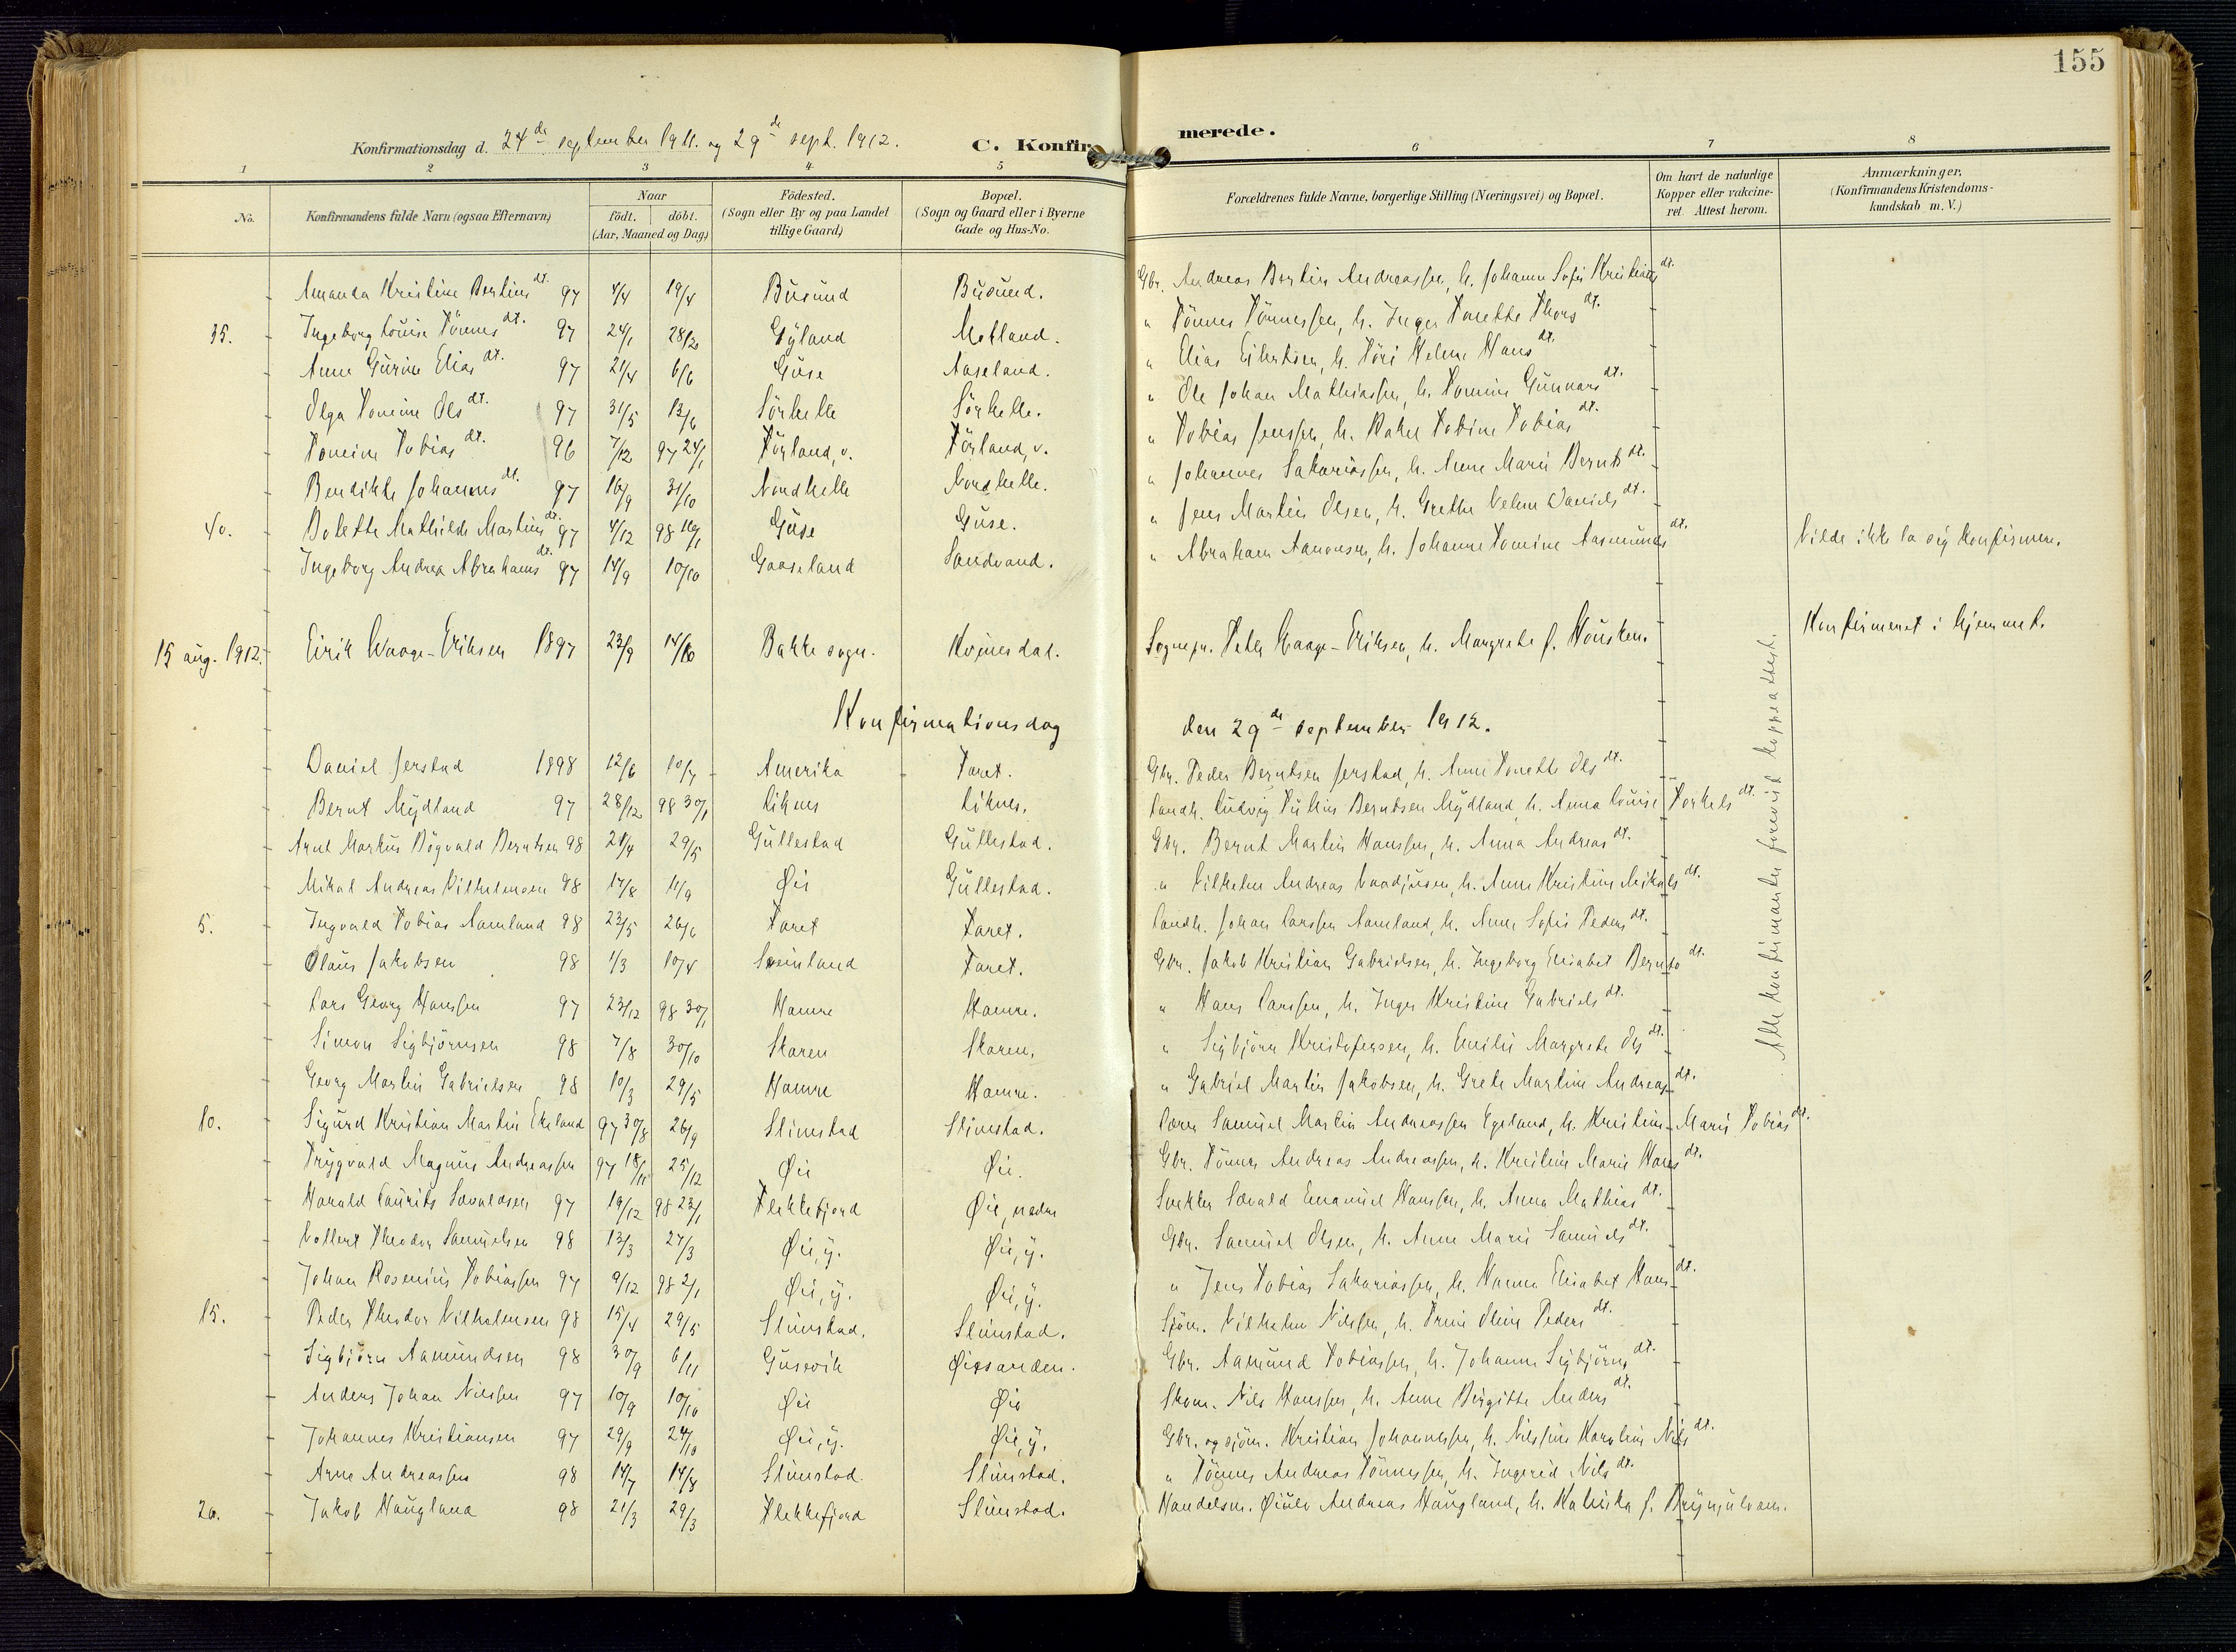 155
Konfirmationsdag d. 24de september 1911. og 29de sept. 1912.
C. Konfirmerede.
1 2 3 4 5 6 7 8
No.
Konfirmandens fulde Navn (ogsaa Efternavn)
Naar
födt. döbt.
(Aar, Maaned og Dag)
Födested.
(Sogn eller By og paa Landet
tillige Gaard)
Bopæl.
(Sogn og Gaard eller i Byerne
Gade og Hus-No.
Forældrenes fulde Navne, borgerlige Stilling (Næringsvei) og Bopæl.
Om havt de naturlige
Kopper eller vakcine-
ret Attest herom.
Anmærkninger.
(Konfirmandens Kristendoms-
kundskab m. V.)
Amanda Kristine Bertinsdt. 97 4/4 19/4 Büsund Büsund. Gbr. Andreas Bertin Andreassen, h. Johanne Sofie Kristiansdt.
35. Ingeborg Louise Tönnesdt. 97 24/1 28/2 Gyland Motland. " Tönnes Tönnessen, h. Inger Tonette Thorsdt.
Anne Gurine Eliasdt. 97 21/4 6/6 Guse Aaseland. " Elias Eilertsen, h. Töri Helene Hansdt.
Olga Tomine Olsdt. 97 31/5 13/6 Sörhelle Sörhelle. " Ole Johan Mathiassen, h. Tomine Gunnarsdt.
Tomine Tobiasdt. 96 7/12 97 24/1 Törland, v. Törland, v. " Tobias Jenssen, h. Rakel Tobine Tobiasdt.
Bendikte Johannesdt. 97 16/9 31/10 Nordhelle Nordhelle. " Johannes Sakariassen, h. Anne Marie Berntsdt.
40. Bolette Mathilde Martinsdt. 97 4/12 98 16/1 Guse Guse. " Jens Martin Olsen, h. Grethe Helene Danielsdt.
Ingeborg Andrea Abrahamsdt. 97 14/9 10/10 Gaaseland Sandvand. " Abraham Aanonsen, h. Johanne Tomine Aasmundsdt. Vilde ikke la sig konfirmere.
15 aug. 1912. Eirik Waage-Eriksen 1897 23/9 14/10 Bakke sogn. Kvinesdal. Sognepr. Peter Waage-Eriksen, h. Margrete f. Housken. Konfirmeret i hjemmet.
Konfirmationsdag den 29de september 1912.
Alle konfirmanter forevist koppeattest.
Daniel Jerstad 1898 12/6 10/7 Amerika Faret. Gbr. Peder Berntsen Jerstad, h. Anne Tonette Olsdt.
Bernt Mydland 97 28/12 98 30/1 Liknes Liknes. Landh. Ludvig Julius Berntsen Mydland, h. Anna Louise Torkelsdt.
Arnt Markus Rögvald Berntsen 98 21/4 29/5 Gullestad Gullestad. Gbr. Bernt Martin Hanssen, h. Anna Andreasdt.
Mikal Andreas Vilhelmsen 98 17/8 11/9 Øie Gullestad. " Vilhelm Andreas h. Anne Kristine Mikalsdt.
5. Ingvald Tobias Aamland 98 23/5 26/6 Faret Faret. Landh. Johan Larssen Aamland, h. Anne Sofie Pedersdt.
Olaus Jakobsen 98 1/3 10/4 Sveinland Faret. Gbr. Jakob Kristian Gabrielsen, h. Ingeborg Elisabet Berntsdt.
Lars Georg Hanssen 97 23/12 98 30/1 Hamre Hamre. " Hans Larssen, h. Inger Kristine Gabrielsdt.
Simon Sigbjörnsen 98 7/8 30/10 Skaren Skaren. " Sigbjörn Kristofersen, h. Emilie Margrete Olsdt.
Georg Martin Gabrielsen 98 10/3 29/5 Hamre Hamre. " Gabriel Martin Jakobsen, h. Grete Martine Andreasdt.
10. Sigurd Kristian Martin Ekeland 97 30/8 26/9 Slimstad Slimstad. Lærer Samuel Martin Andreassen Egeland, h. Kristine Marie Tobiasdt.
Trygvald Magnus Andreassen 97 18/11 25/12 Øie Øie. Gbr. Tönnes Andreas Andreassen, h. Kristine Marie Hansdt.
Harald Laurits Sævaldsen 97 19/12 98 23/1 Flekkefjord Øie, nedre Snekker Sævald Emanuel Hanssen, h. Anna Mathiasdt.
Vollert Theodor Samuelsen 98 13/3 27/3 Øie, y. Øie, y. Gbr. Samuel Olsen, h. Anne Marie Samuelsdt.
Johan Rosenius Tobiassen 97 9/12 98 2/1 Øie, y. Øie, y. " Jens Tobias Sakariassen, h. Hanna Elisabet Hansdt.
15. Peder Theodor Vilhelmsen 98 15/4 29/5 Slimstad. Slimstad. Sjöm. Vilhelm Nilssen, h. Trine Oline Pedersdt.
Sigbjörn Aamundsen 98 30/9 6/11 Gusevik Øiesanden. Gbr. Aamund Tobiassen, h. Johanne Sigbjörnsdt.
Anders Johan Nilssen 97 10/9 10/10 Øie Øie Skom. Nils Hanssen, h. Anne Birgitte Andersdt.
Johannes Kristiansen 97 29/9 24/10 Øie, y. Øie, y. Gbr. og sjöm. Kristian Johannessen, h. Nilsine Karoline Nilsdt.
Arne Andreassen 98 14/7 14/8 Slimstad. Slimstad. " Tönnes Andreas Tönnessen, h. Ingerid Nilsdt.
20. Jakob Haugland 98 21/3 29/3 Flekkefjord Slimstad. Handelsm. Øiulv Andreas Haugland, h. Katinka f. Brynjulvsen.